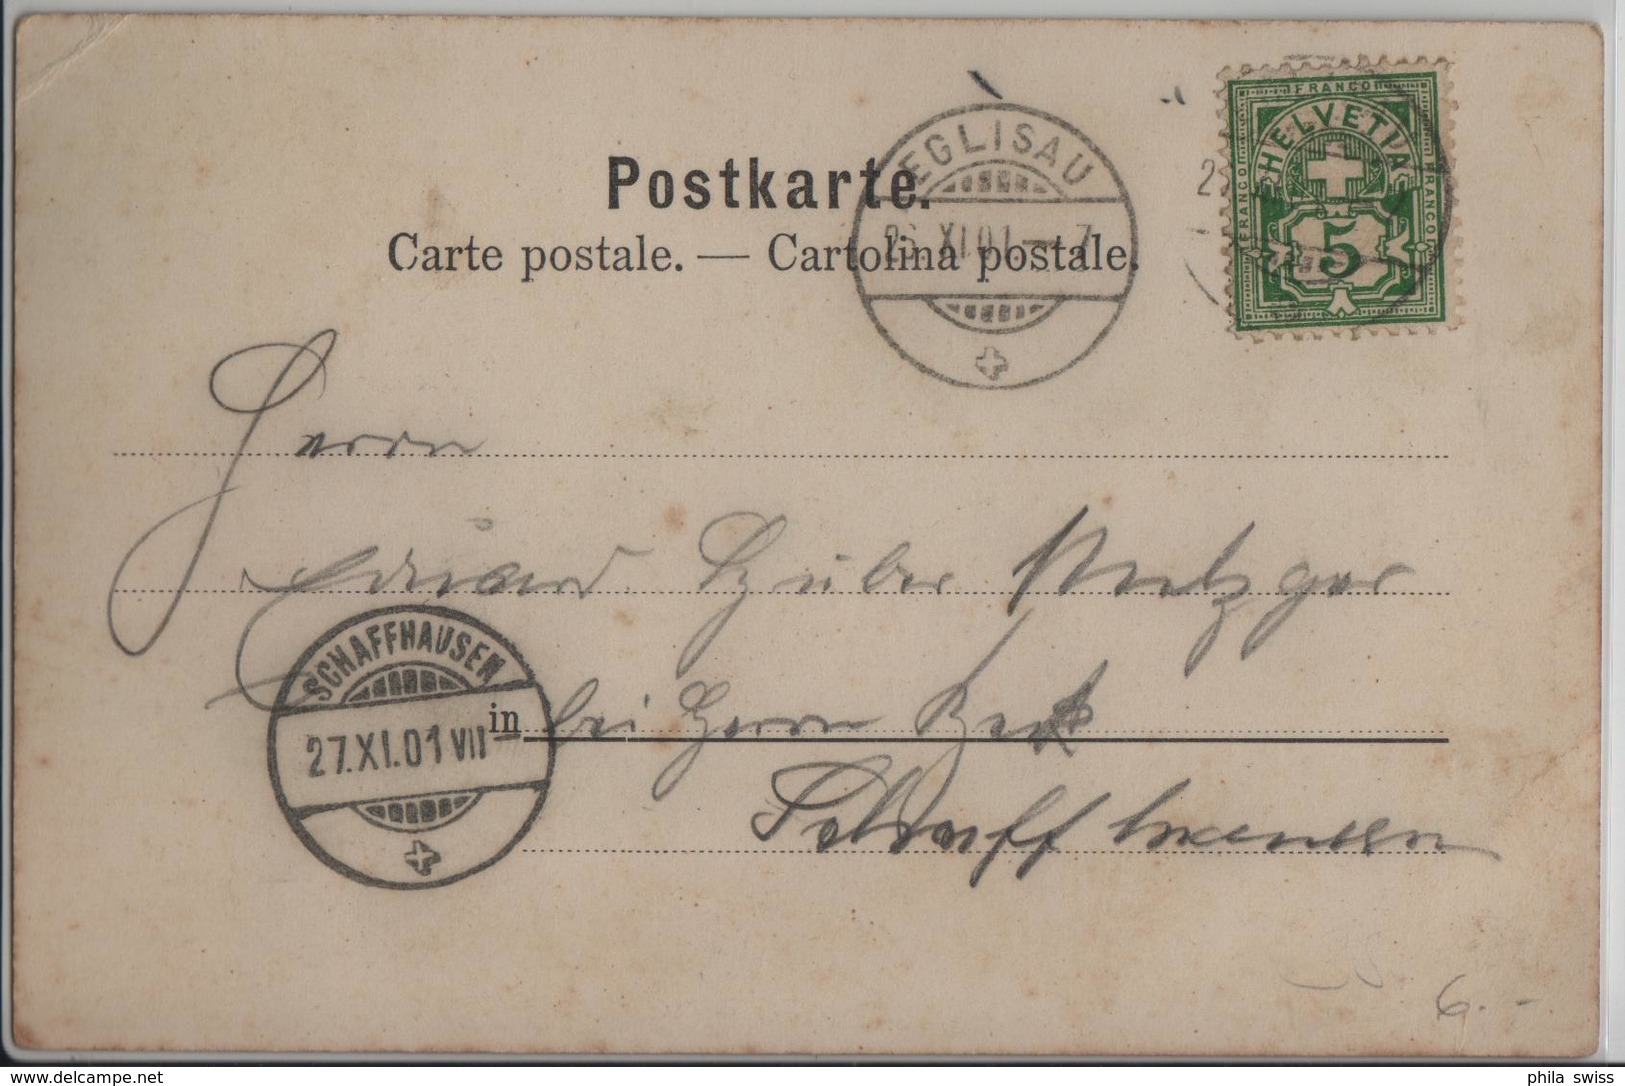 Postkarte.
Carte postale. — Cartolina postale.
EGLISAU
26.XI.01 – 7
FRANCO
FRANCO
FRANCO
HELVETIA
5
Herrn
Eduard Huber Metzger
in bei Herrn Beck
Schaffhausen
SCHAFFHAUSEN
27.XI.01 VII –
6.-
delcampe.net
phila_swiss